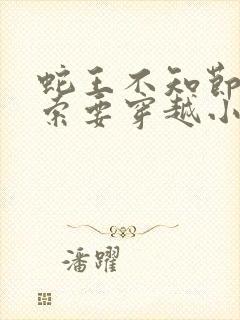 蛇王不知節
索要穿越小
潘躍